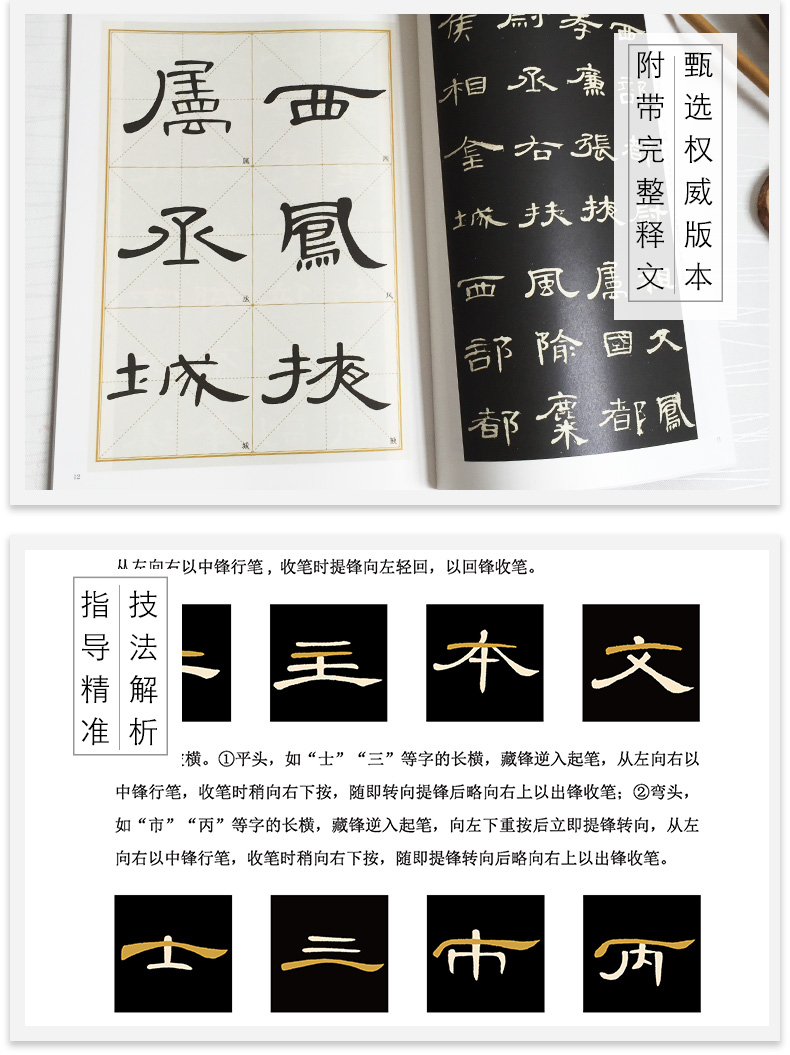 西鳳掖
屬丞城
西
凤
掖
属
丞
城
12
西部都尉祖父鳳
孝廉張掖屬國都
尉丞右扶風隃麋
侯相金城西部都
甄选权威版本
附带完整释文
从左向右以中锋行笔，收笔时提锋向左轻回，以回锋收笔。
技法解析
指导精准
主 本 文
横。①平头，如“士”“三”等字的长横，藏锋逆入起笔，从左向右以
中锋行笔，收笔时稍向右下按，随即转向提锋后略向右上以出锋收笔；②弯头，
如“市”“丙”等字的长横，藏锋逆入起笔，向左下重按后立即提锋转向，从左
向右以中锋行笔，收笔时稍向右下按，随即提锋转向后略向右上以出锋收笔。
士 三 市 丙